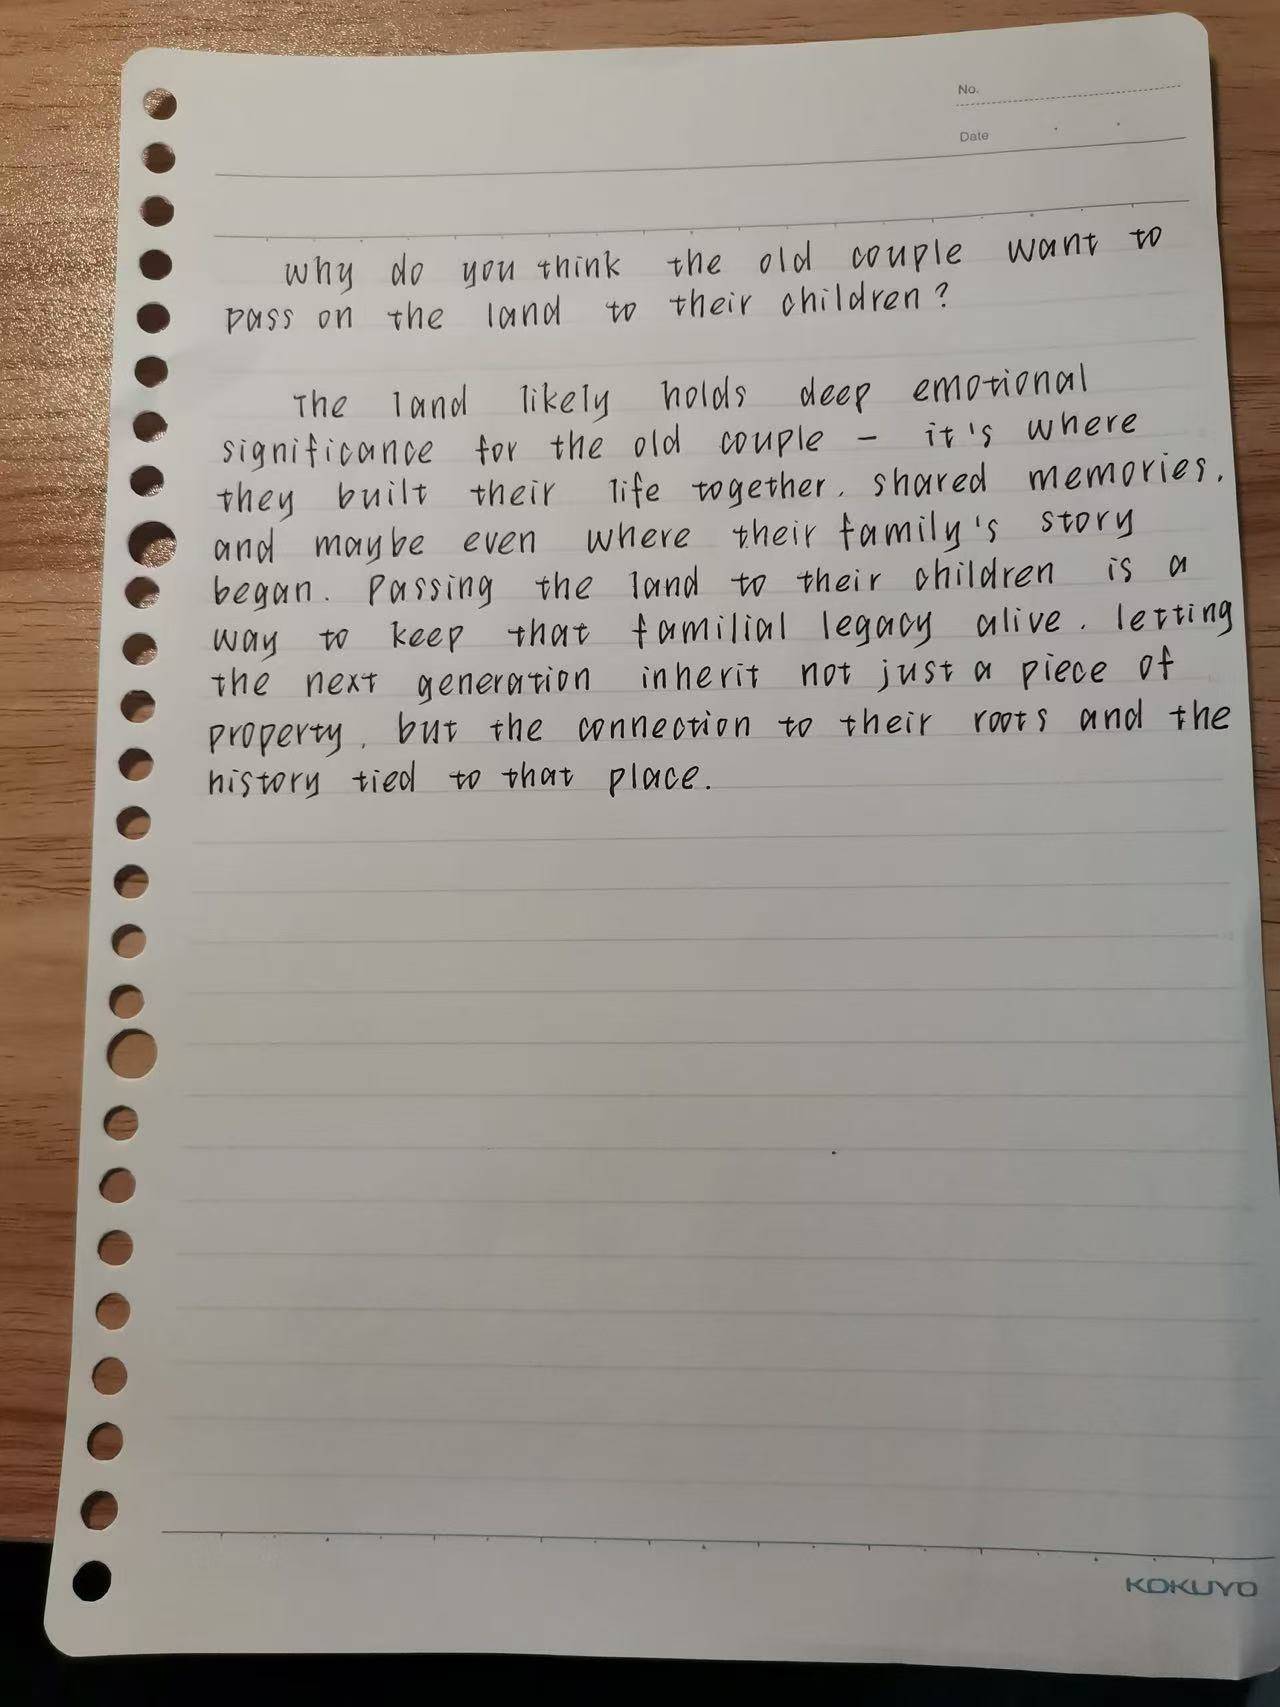 No.
Date
why do you think the old couple want to
pass on the land to their children?
The land likely holds deep emotional
significance for the old couple – it's where
they built their life together, shared memories,
and maybe even where their family's story
began. Passing the land to their children is a
way to keep that familial legacy alive, letting
the next generation inherit not just a piece of
property, but the connection to their roots and the
history tied to that place.
KOKUYO